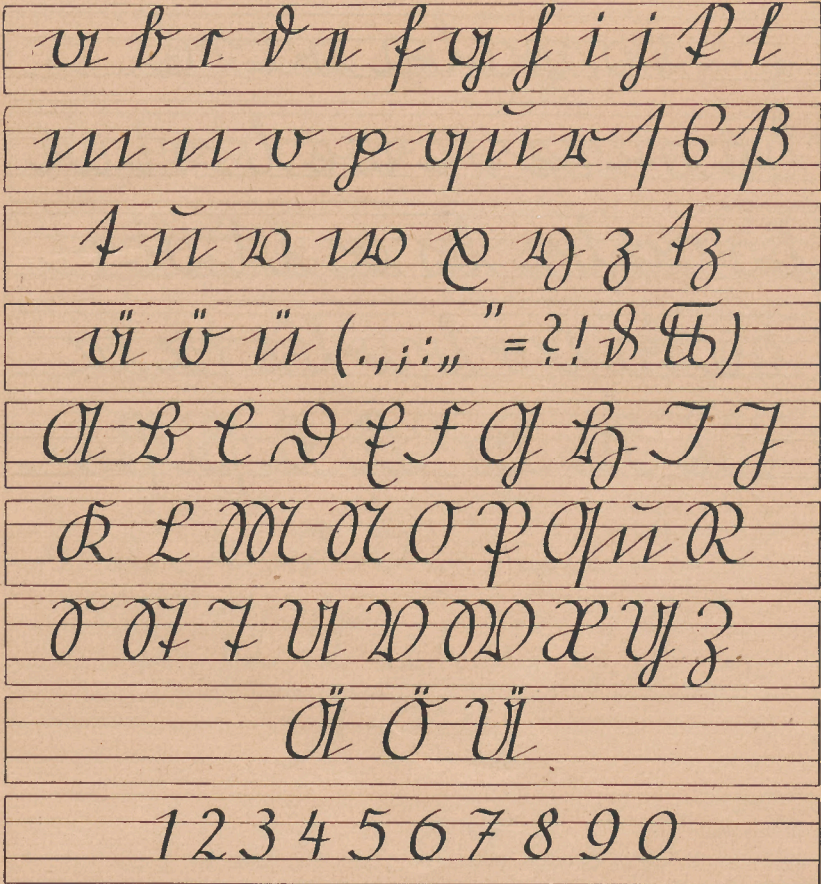 a b c d e f g h i j k l
m n o p qu r ſ s ß
t u v w x y z tz
ä ö ü ( . , ; : „ “ = ? ! )
A B C D E F G H I J
K L M N O P Qu R
S St T U V W X Y Z
Ä Ö Ü
1 2 3 4 5 6 7 8 9 0